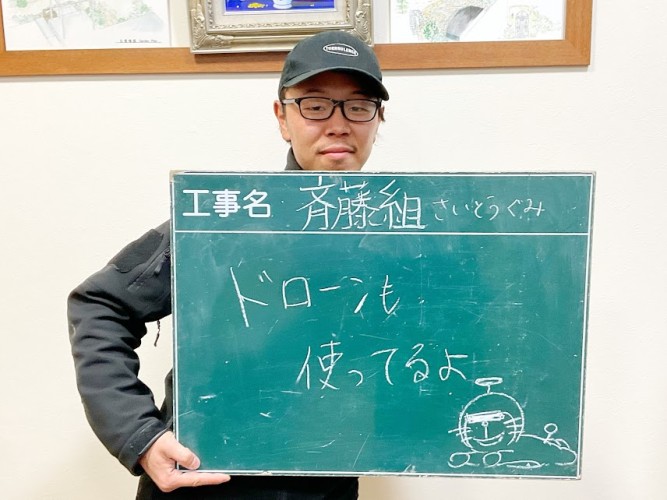 工事名 斉藤組 さいとうぐみ
ドローンも
使ってるよ